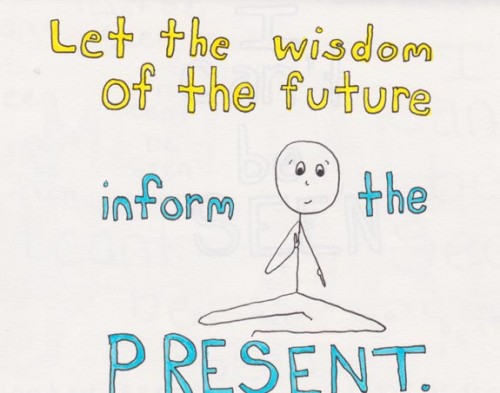 Let the wisdom
of the future
inform the
PRESENT.